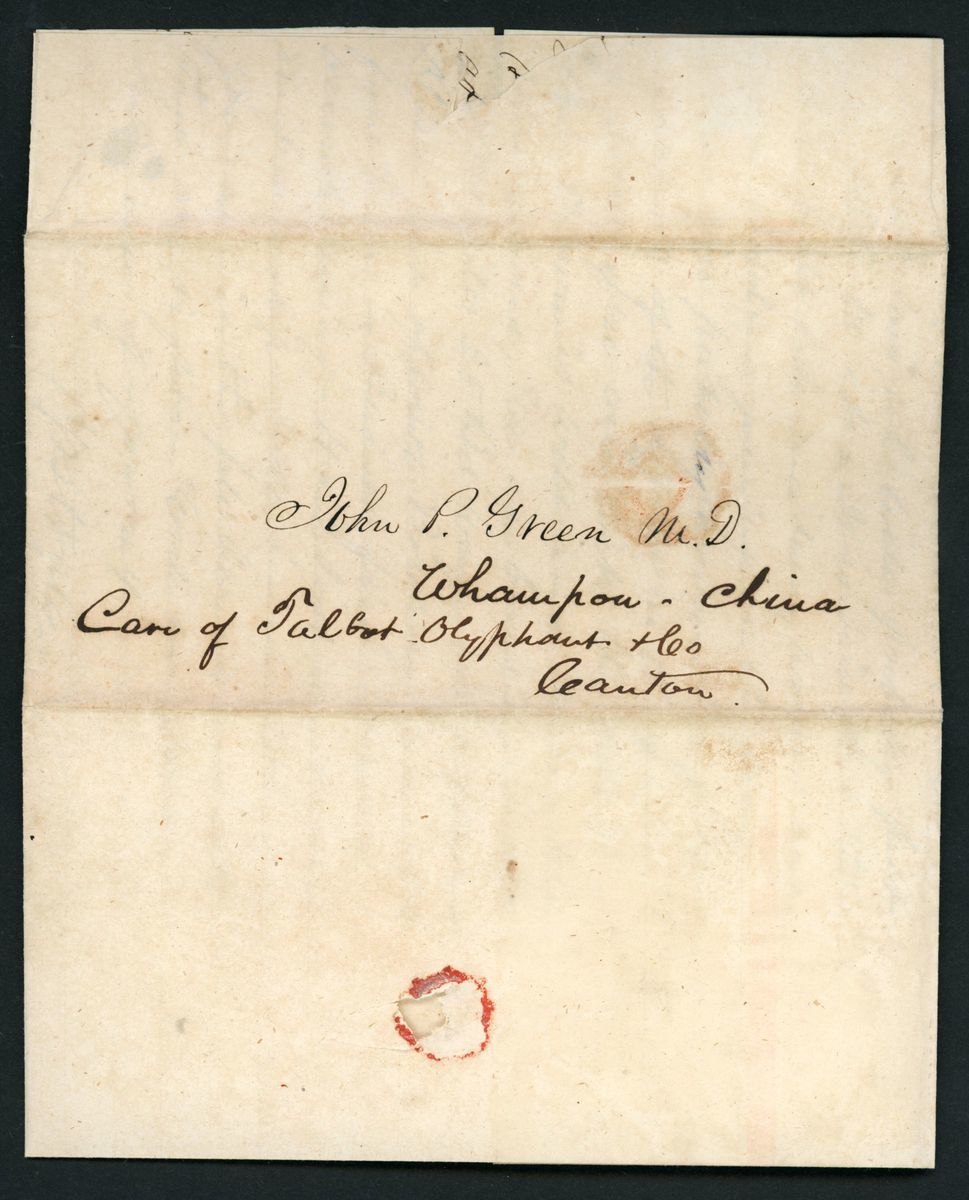 John P. Green M.D.
Whampoa - China
Care of Talbot Olyphant & Co
Canton